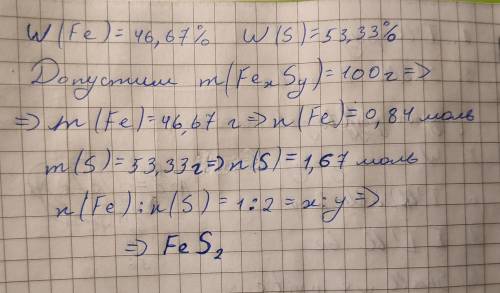 W(Fe)=46,67% W(S)=53,33%
Допустим m(FexSy)=100г=>
=> m(Fe)=46,67 г=>n(Fe)=0,84 моль
m(S)=53,33г=>n(S)=1,67 моль
n(Fe):n(S)=1:2=x:y=>
=> FeS2